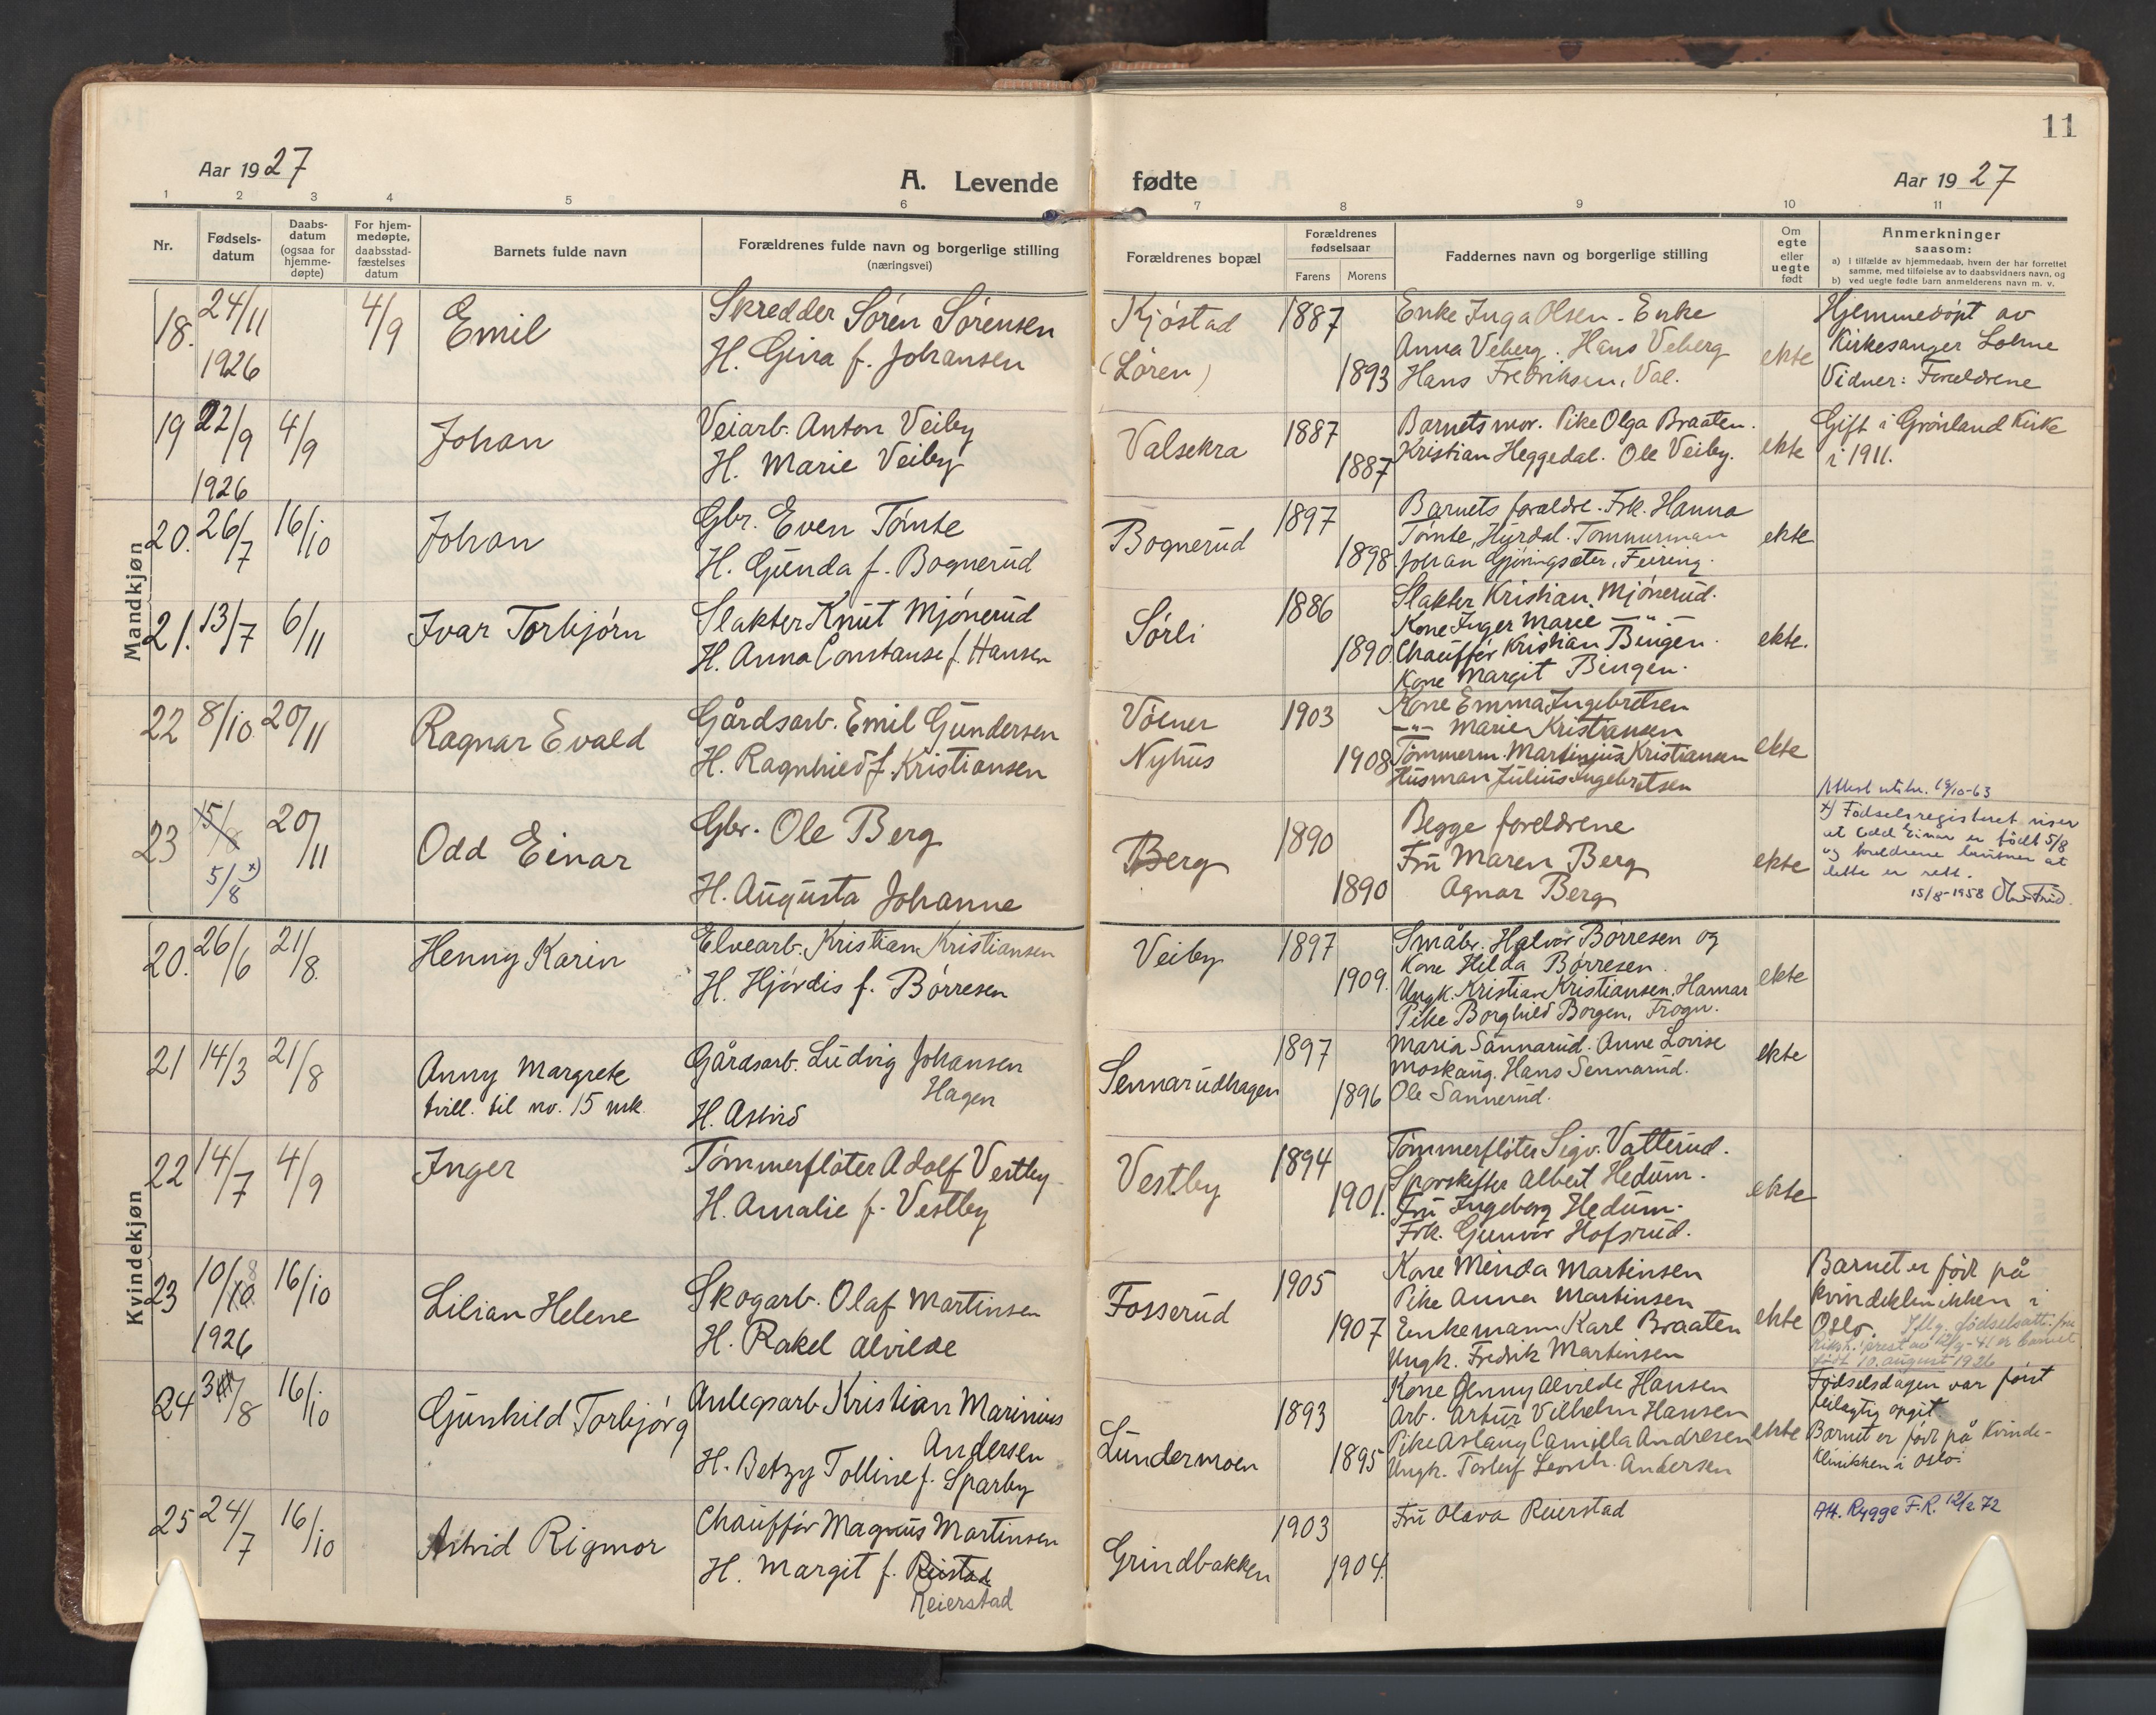 11
Aar 1927
A. Levende fødte
Aar 1927
1 2 3 4 5 6 7 8 9 10 11
Nr.
Fødsels-
datum
Daabs-
datum
(ogsaa for
hjemme-
døpte)
For hjem-
medøpte,
daabsstad-
fæstelses
datum
Barnets fulde navn
Forældrenes fulde navn og borgerlige stilling
(næringsvei)
Forældrenes bopæl
Forældrenes
fødselsaar
Farens Morens
Faddernes navn og borgerlige stilling
Om
egte
eller
uegte
født
Anmerkninger
saasom:
a) I tilfælde av hjemmedaab, hvem der har forrettet
samme, med tilføielse av to daabsvidners navn, og
b) ved uegte fødte barn anmelderens navn m. v.
Mandkjøn
18. 24/11
1926
4/9
Emil
Skredder Sören Sörensen
H. Gina f. Johansen
Kjöstad
(Lören)
1887
1893
Enke Inga Olsen. Enke
Anna Veberg. Hans Veberg
Hans Fredriksen, Val.
ekte
Hjemmedöpt av
Kirkesanger Lohne
Vidner: Foreldrene
19 22/9
1926
4/9
Johan
Veiarb. Anton Veiby
H. Marie Veiby
Valsekra
1887
1887
Barnets mor. Pike Olga Braaten.
Kristian Heggedal. Ole Veiby.
ekte
Gift i Grönland Kirke
i 1911.
20. 26/7 16/10
Johan
Gbr. Even Tömte
H. Gunda f. Bognerud
Bognerud
1897
1898
Barnets foreldre. Frk. Hanna
Tömte, Hurdal. Tömmerman
Johan Gjöningsæter, Feiring.
ekte
21. 13/7 6/11
Ivar Torbjörn
Slakter Knut Mjönerud
H. Anna Constanse f. Hansen
Sörli
1886
1890.
Slakter Kristian Mjönerud.
Kone Inger Marie — " —
Chauffför Kristian Bingen.
Kone Margit Bingen.
ekte.
22 8/10 20/11
Ragnar Evald
Gårdsarb. Emil Gundersen
H. Ragnhild f. Kristiansen
Völner
Nyhus
1903
1908
Kone Emma Ingebretsen
—"— Marie Kristiansen
Tömmerm. Martinius Kristiansen
Husman Julius Ingebretsen
ekte
23 15/8
5/8 x)
20/11
Odd Einar
Gbr. Ole Berg
H. Augusta Johanne
Berg
1890
1890
Begge foreldrene
Fru Maren Berg
Agnar Berg
ekte
Attest utsten. 19/10-63
x) Födselsregisteret viser
at Odd Einar er födt 5/8
og foreldrene at
dette er rett.
15/8-1958
Kvindekjøn
20. 26/6 21/8.
Henny Karin
Elvearb. Kristian Kristiansen
H. Hjördis f. Börresen
Veiby
1897
1909.
Småbr. Halvor Börresen og
Kone Hilda Börresen.
Ungk. Kristian Kristiansen, Hamar
Pike Borghild Borgen, Frogn.
ekte
21 14/3 21/8
Anny Margrete
tvill. til no. 15 mk.
Gårdsarb. Ludvig Johansen
Hagen
H. Astrid
Sennarudhagen
1897
1896
Maria Sannarud. Anne Lovise
Moskaug. Hans Sennarud.
Ole Sannerud.
ekte
22 14/7 4/9
Inger
Tömmerflöter Adolf Vestby
H. Amalie f. Vestby
Vestby
1894
1901.
Tömmerflöter Sigv. Vatterud.
Sporskifter Albert Hedum.
Fru Ingeborg Hedum.
Frk. Gunvor Hofsrud.
ekte
23 10/10 8
1926
16/10
Lilian Helene
Skogarb. Olaf Martinsen
H. Rakel Alvilde
Fosserud
1905
1907
Kone Minda Martinsen
Pike Anna Martinsen
Enkemann Karl Braaten
Ungk. Fredrik Martinsen
ekte
Barnet er född på
kvindeklinikken i
Oslo. Iflg. födselsatt. fra
Riksh. prest av 12/9-41 er barnet
född 10. august 1926
24 3/8 16/10
Gunhild Torbjörg
Anlegsarb. Kristian Marinius
Andersen
H. Betzy Tolline f. Sparby
Lundermoen
1893
1895
Kone Jenny Alvilde Hansen
Arb. Artur Vilhelm Hansen
Pike Aslaug Camilla Andresen
Ungk. Torleif Leonh. Andersen
ekte
Födselsdagen var först
feilagtig opgit
Barnet er född på Kvinde-
klinikken i Oslo.
25 24/7 16/10
Astrid Rigmor
Chauffför Magnus Martinsen
H. Margit f. Reistad
Reierstad
Grindbakken
1903
1904.
Fru Olava Reierstad
Att. Rygge F.R. 12/2 72